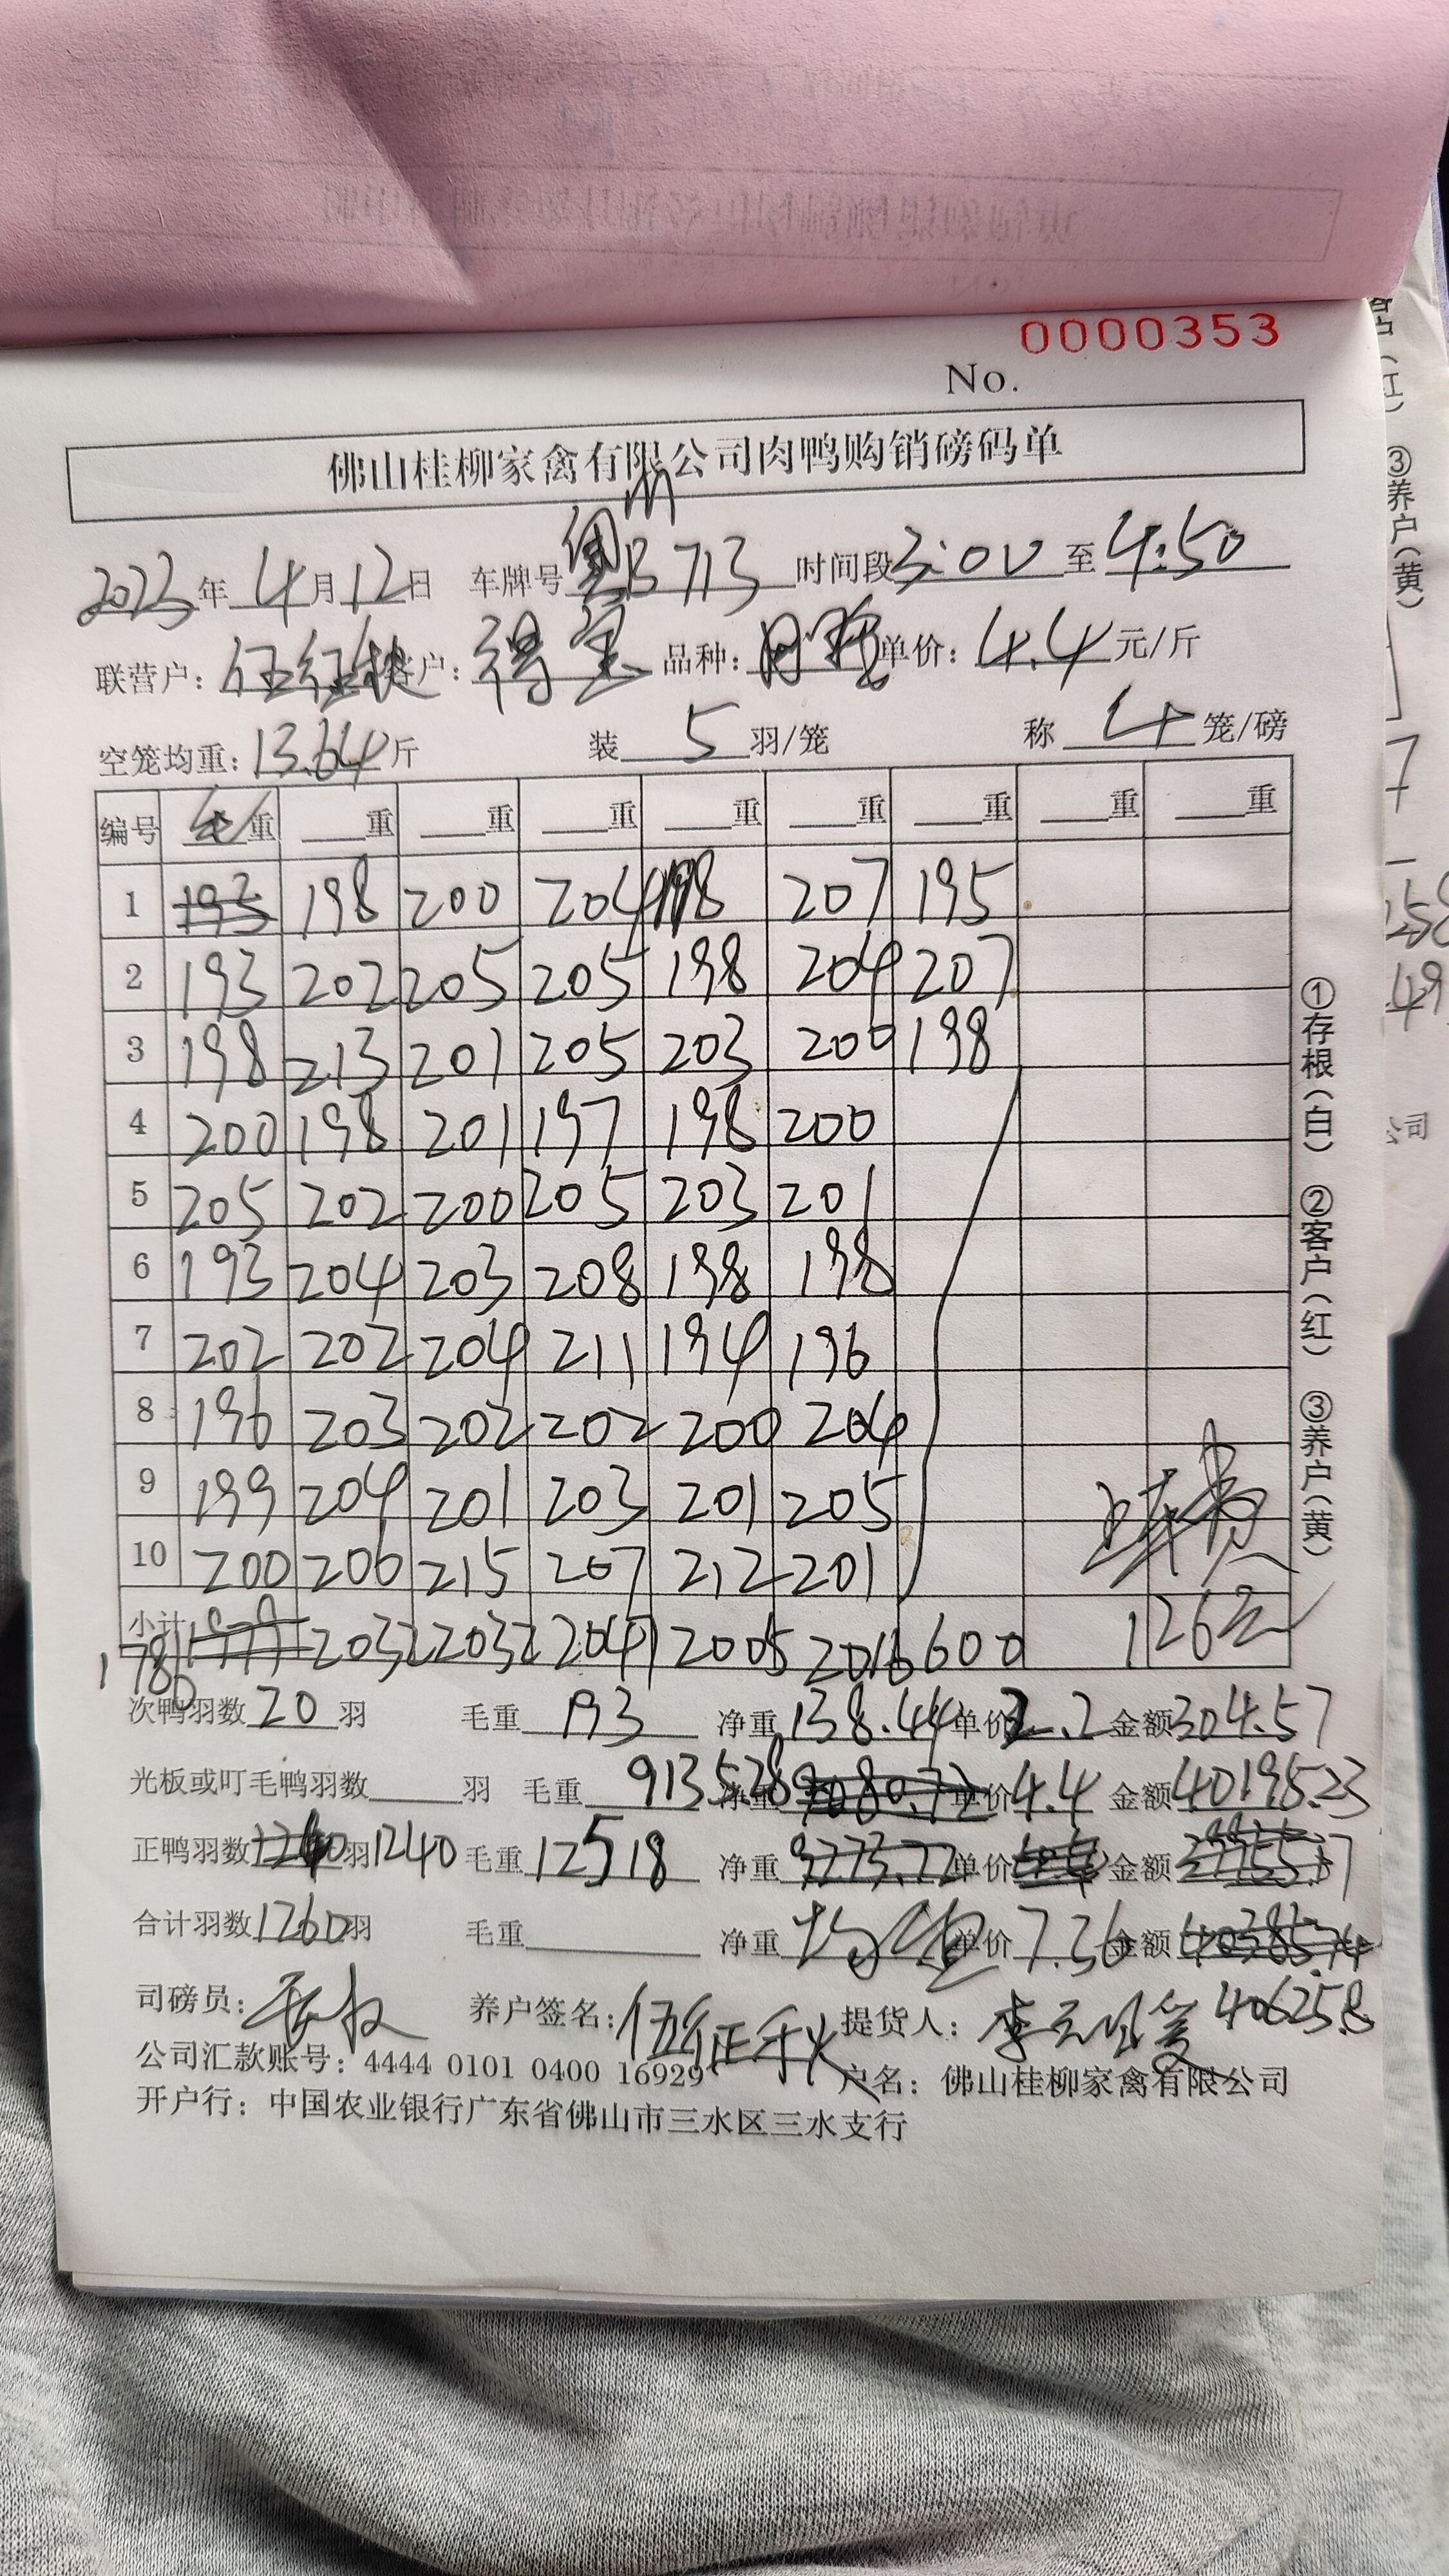 0000353
No.
佛山桂柳家禽有限公司肉鸭购销磅码单
2023年4月12日 车牌号 粤B713 时间段3:00至4:50
联营户: 伍征秋 客户: 得宝 品种: 单价: 4.4元/斤
空笼均重: 13.64斤 装5羽/笼 称4笼/磅
编号 毛重 重 重 重 重 重 重 重 重
1 193 198 200 204 198 207 195
2 193 202 205 205 198 204 207
3 198 213 201 205 203 200 198
4 200 198 201 197 198 200
5 205 202 200 205 203 201
6 193 204 203 208 198 198
7 202 202 204 211 194 196
8 196 203 202 202 200 204
9 199 204 201 203 201 205
10 200 206 215 207 212 201
小计 1979 2032 2032 2047 2005 2016 600 126元
1786
次鸭羽数20羽 毛重193 净重138.44单价2.2金额304.57
光板或叮毛鸭羽数 羽 毛重 9135.28 净重9080.72单价4.4金额40195.23
正鸭羽数1260羽1240 毛重12518 净重9273.72单价 金额
合计羽数1260羽 毛重 净重 均重 单价7.36金额
司磅员: 养户签名: 伍征秋 提货人: 40625.8
公司汇款账号: 4444 0101 0400 16929 户名: 佛山桂柳家禽有限公司
开户行: 中国农业银行广东省佛山市三水区三水支行
①存根(白) ②客户(红) ③养户(黄)
③养户(黄)